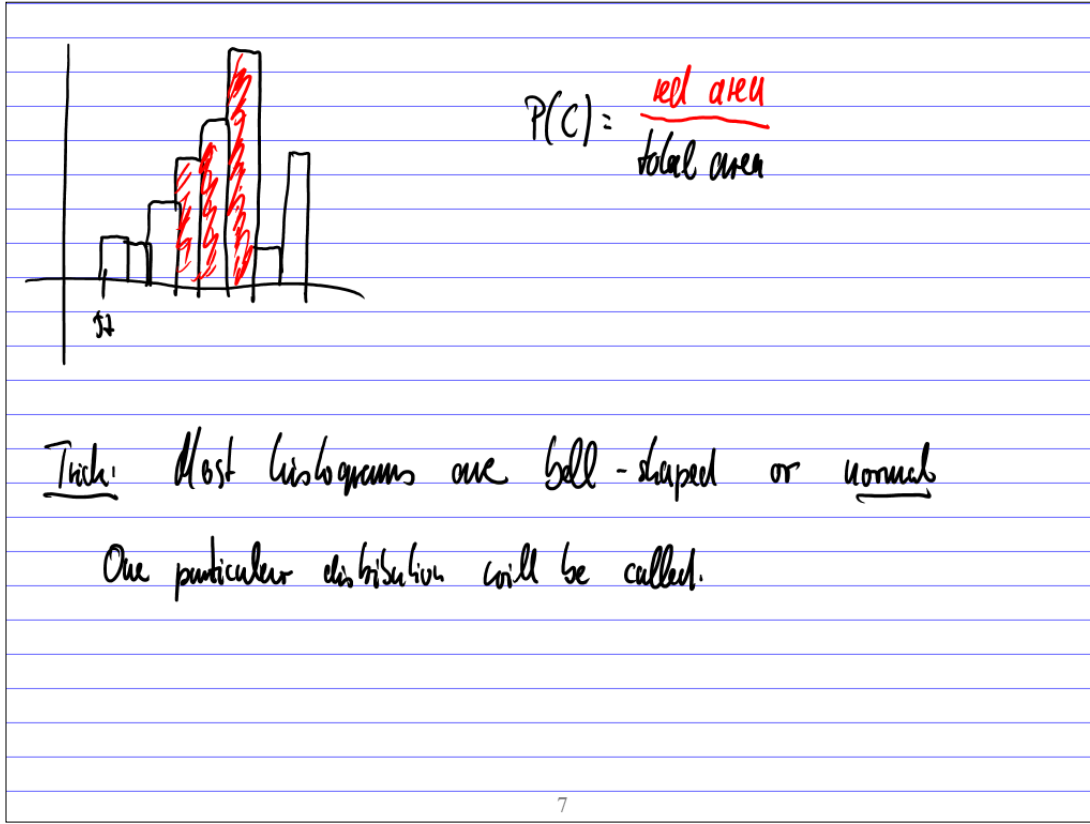 P(C) = red area
total area
Trick: Most histograms are bell-shaped or normal
One particular distribution will be called.
7